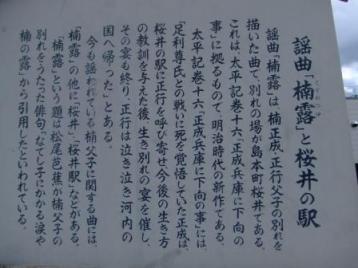 謡曲「楠露」と桜井の駅
謡曲「楠露」は楠正成、正行父子の別れを
描いた曲で、別れの場が島本町桜井である。
これは、太平記巻十六「正成兵庫に下向の
事」に拠るもので、明治時代の新作である。
太平記巻十六、「正成兵庫に下向の事」には、
「足利尊氏との戦いに死を覚悟していた正成は、
桜井の駅に正行を呼び寄せ今後の生き方
の教訓を与えた後、生き別れの宴を催し、
その宴も終り、正行は泣き泣き河内の
国へ帰った」とある。
今も謡われている楠父子に関する曲には、
「楠露」の他に「桜井」「桜井駅」などがある。
「楠露」という題は松尾芭蕉が楠父子の
別れをうたった俳句「なでし子にかかる涙や
楠の露」から引用したといわれている。